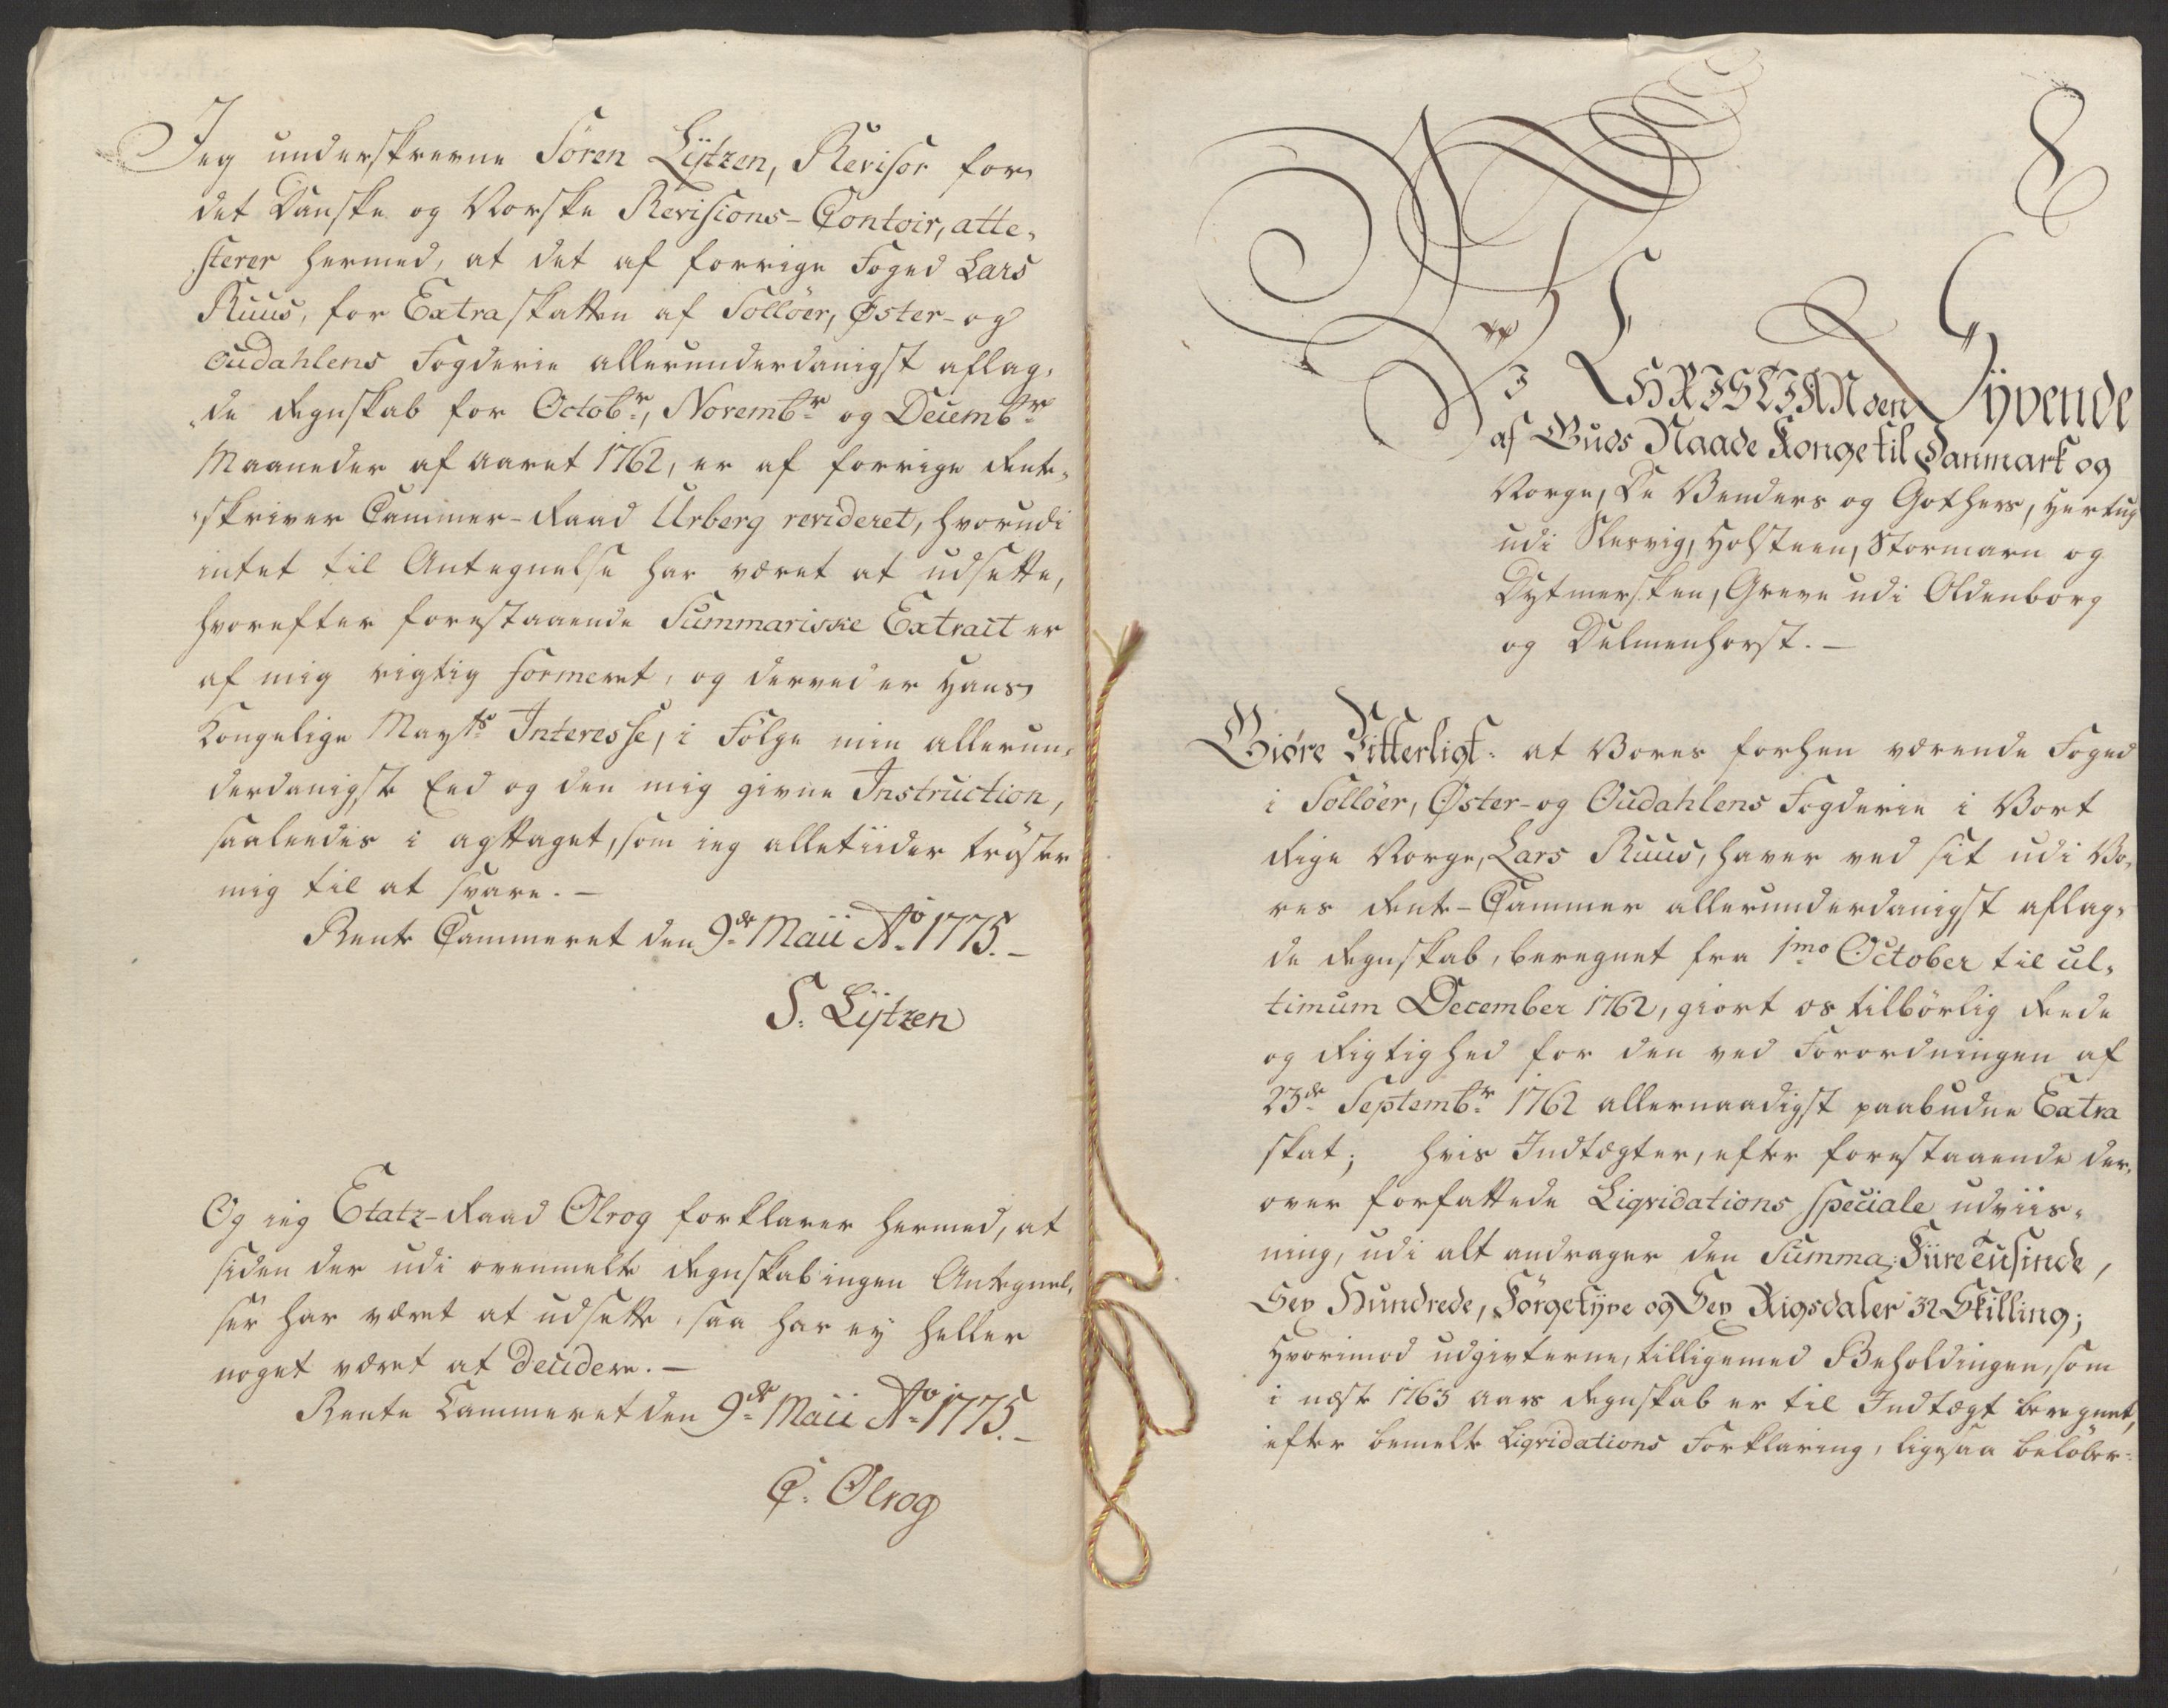 Jeg underskrevne Sören Lÿtzen, Revisor for
det Danske og Norske Revisions-Contoir, atte-
sterer hermed, at det af forrige Foged Lars
Ruus, for Extraskatten af Sollöer, Øster- og
Oudahlens Fogderie allerunderdanigst aflag-
de Regnskab for Octobr, Novembr og Decembr
Maaneder af Aaret 1762, er af forrige Rente-
skriver Cammer-Raad Urberg revideret, hvorudi
intet til Antegnelse har været at udsette,
hvorefter forestaaende Summariske Extract er
af mig rigtig formeret, og derved er Hans
Kongelige Mayts Interesse, i Fölge min allerun-
derdanigste Eed og den mig givne Instruction,
saaledes i agttaget, som ieg alletiider tröster
mig til at svare. -
Rente Cammeret den 9de Maii Ao 1775. -
S. Lÿtzen
Og ieg Etatz-Raad Olrog forklarer hermed, at
siden der udi ovenmelte Regnskab ingen Antegnel-
ser har været at udsette, saa har ey heller
noget været at decidere. -
Rente Cammeret den 9de Maii Ao 1775. -
C. Olrog
8
Vi CHRISTIAN den Syvende
af Guds Naade Konge til Danmark og
Norge, De Venders og Gothers, Hertug
udi Slesvig, Holsteen, Stormarn og
Dytmersken, Greve udi Oldenborg
og Delmenhorst. -
Giøre Vitterligt: at Vores forhen værende Foged
i Sollöer, Øster- og Oudahlens Fogderie i Vort
Rige Norge, Lars Ruus, haver ved sit udi Vo-
res Rente-Cammer allerunderdanigst aflag-
de Regnskab, beregnet fra 1mo October til ul-
timum December 1762, giort os tilbörlig Rede
og Rigtighed for den ved Forordningen af
23de Septembr 1762 allernaadigst paabudne Extra
skat; hvis Indtægter, efter forestaaende der-
over forfattede Liqvidations speciale udviis-
ning, udi alt andrager den Summa: Fiire Tusinde,
Sex Hundrede, Förgetyve og Sex Rigsdaler 32 Skilling;
Hvorimod udgivterne, tilligemed Beholdingen, som
i næste 1763 Aars Regnskab er til Indtægt beregnet,
efter bemelte Liqvidations Forklaring, ligesaa belöber-